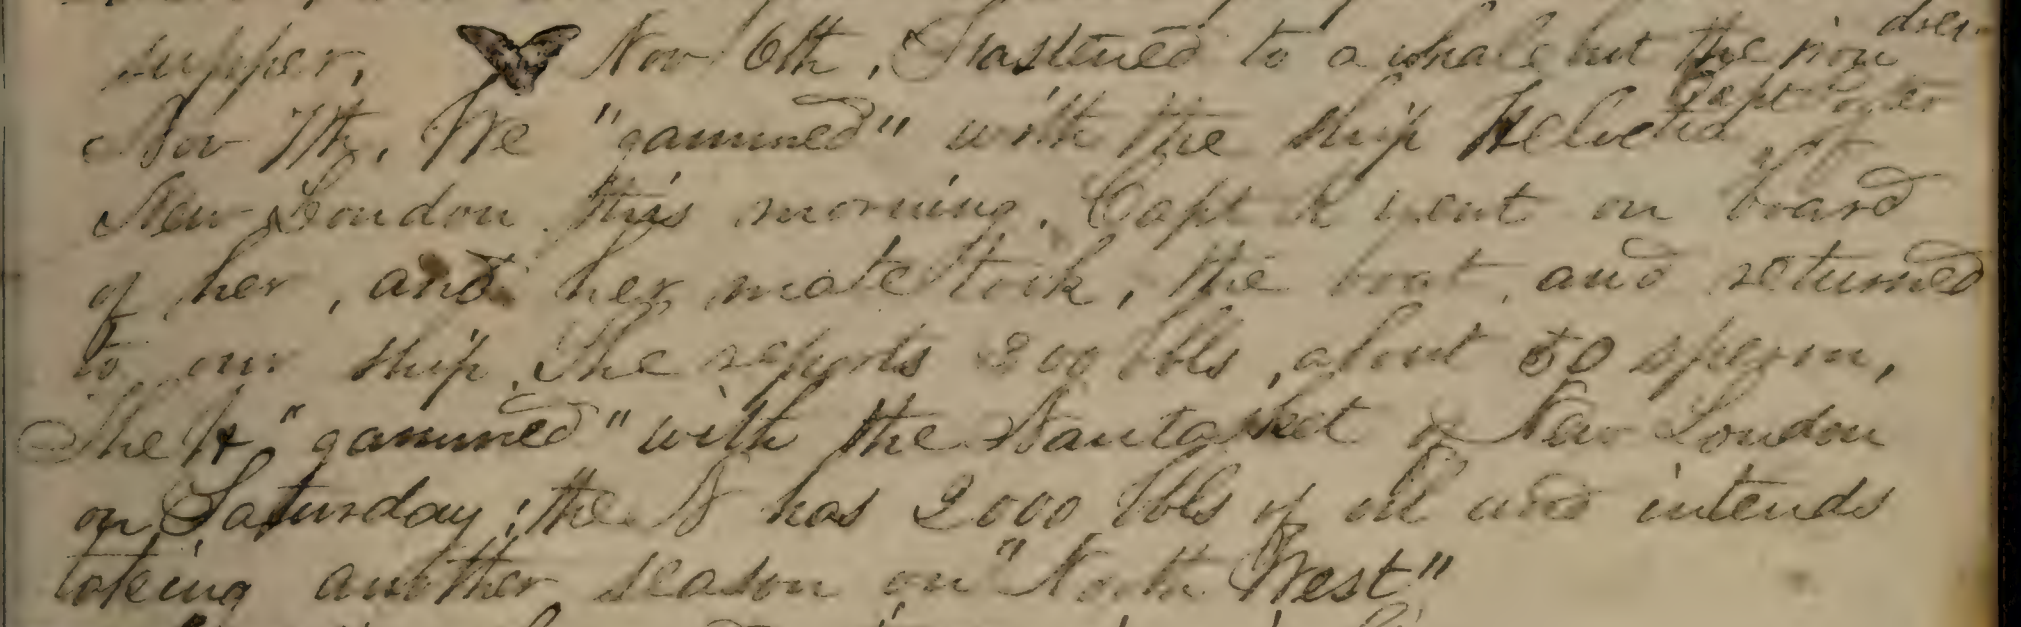 supper, Nov 6th, Fastened to a whale but the iron drew
Nov 7th, We "gammed" with the ship Helvetia Capt Porter of
New London this morning. Capt H went on board
of her, and her mate took, the boat, and returned
to our ship. She reports 200 bbls, about 50 sperm,
The H "gammed" with the Nantasket of New London
on Saturday; the N has 2000 bbls of oil and intends
takeing another season on "North West"